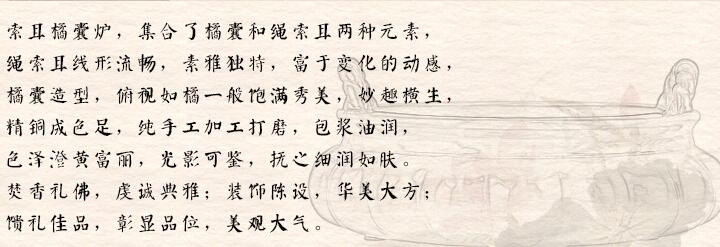 索耳橘囊炉，集合了橘囊和绳索耳两种元素，
绳索耳线形流畅，素雅独特，富于变化的动感，
橘囊造型，俯视如橘一般饱满秀美，妙趣横生，
精铜成色足，纯手工加工打磨，包浆油润，
色泽澄黄富丽，光影可鉴，抚之细润如肤。
焚香礼佛，虔诚典雅；装饰陈设，华美大方；
馈礼佳品，彰显品位，美观大气。